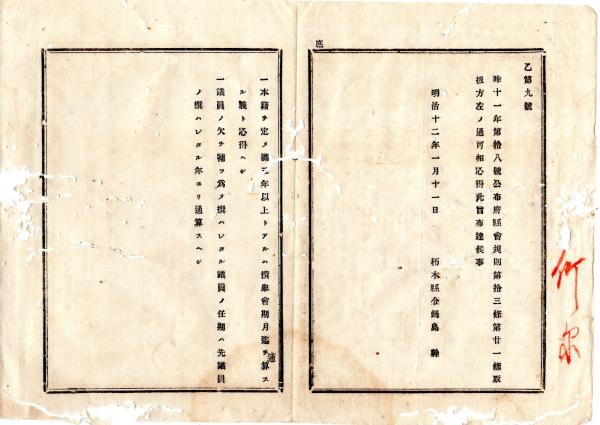 乙第九號
昨十一年第拾八號公布府縣會規則第拾三條第廿一條取
扱方左ノ通可相心得此旨布達候事
明治十二年一月十一日
栃木縣令鍋島 幹
一本籍ヲ定メ滿三年以上トアルハ撰擧會期月迄ヲ算ス
ル義ト心得ヘシ
一議員ノ欠ヲ補フ爲メ撰ハレタル議員ノ任期ハ先議員
ノ撰ハレタル年ヨリ通算スヘシ